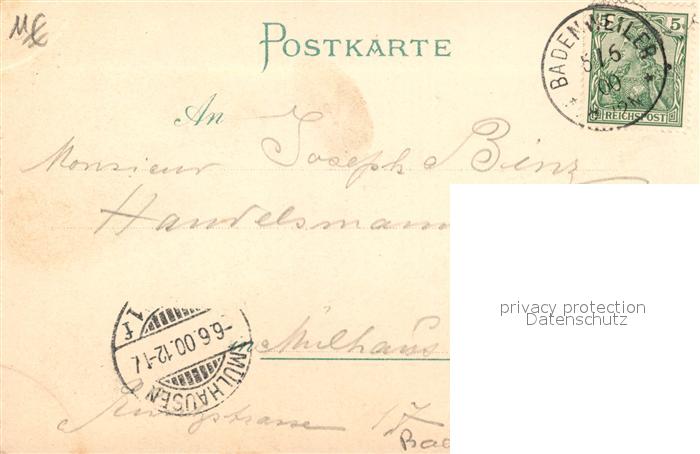 POSTKARTE
5 5
REICHSPOST
BADENWEILER
6/6
00
An
Monsieur Joseph Binz
Handelsmann
privacy protection
Datenschutz
in Mülhaus
MÜLHAUSEN
1f
-6.6.00.12-1
17
Bad